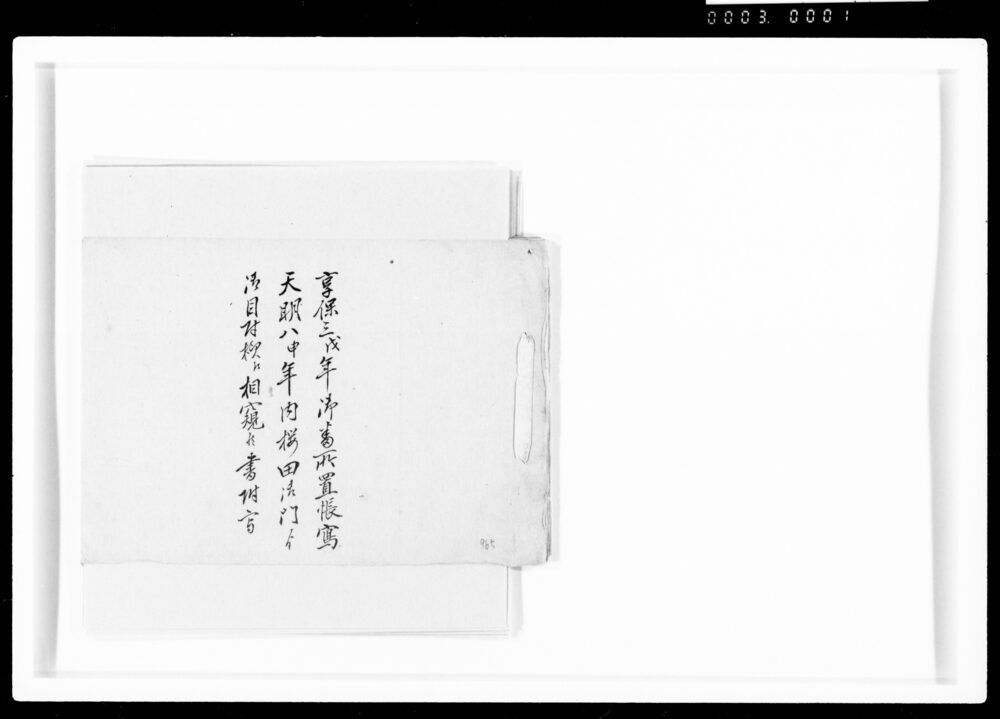 0003. 0001
享保三戌年御番所置帳寫
天明八申年内桜田御門ゟ
御目付様江相窺候書付写
965